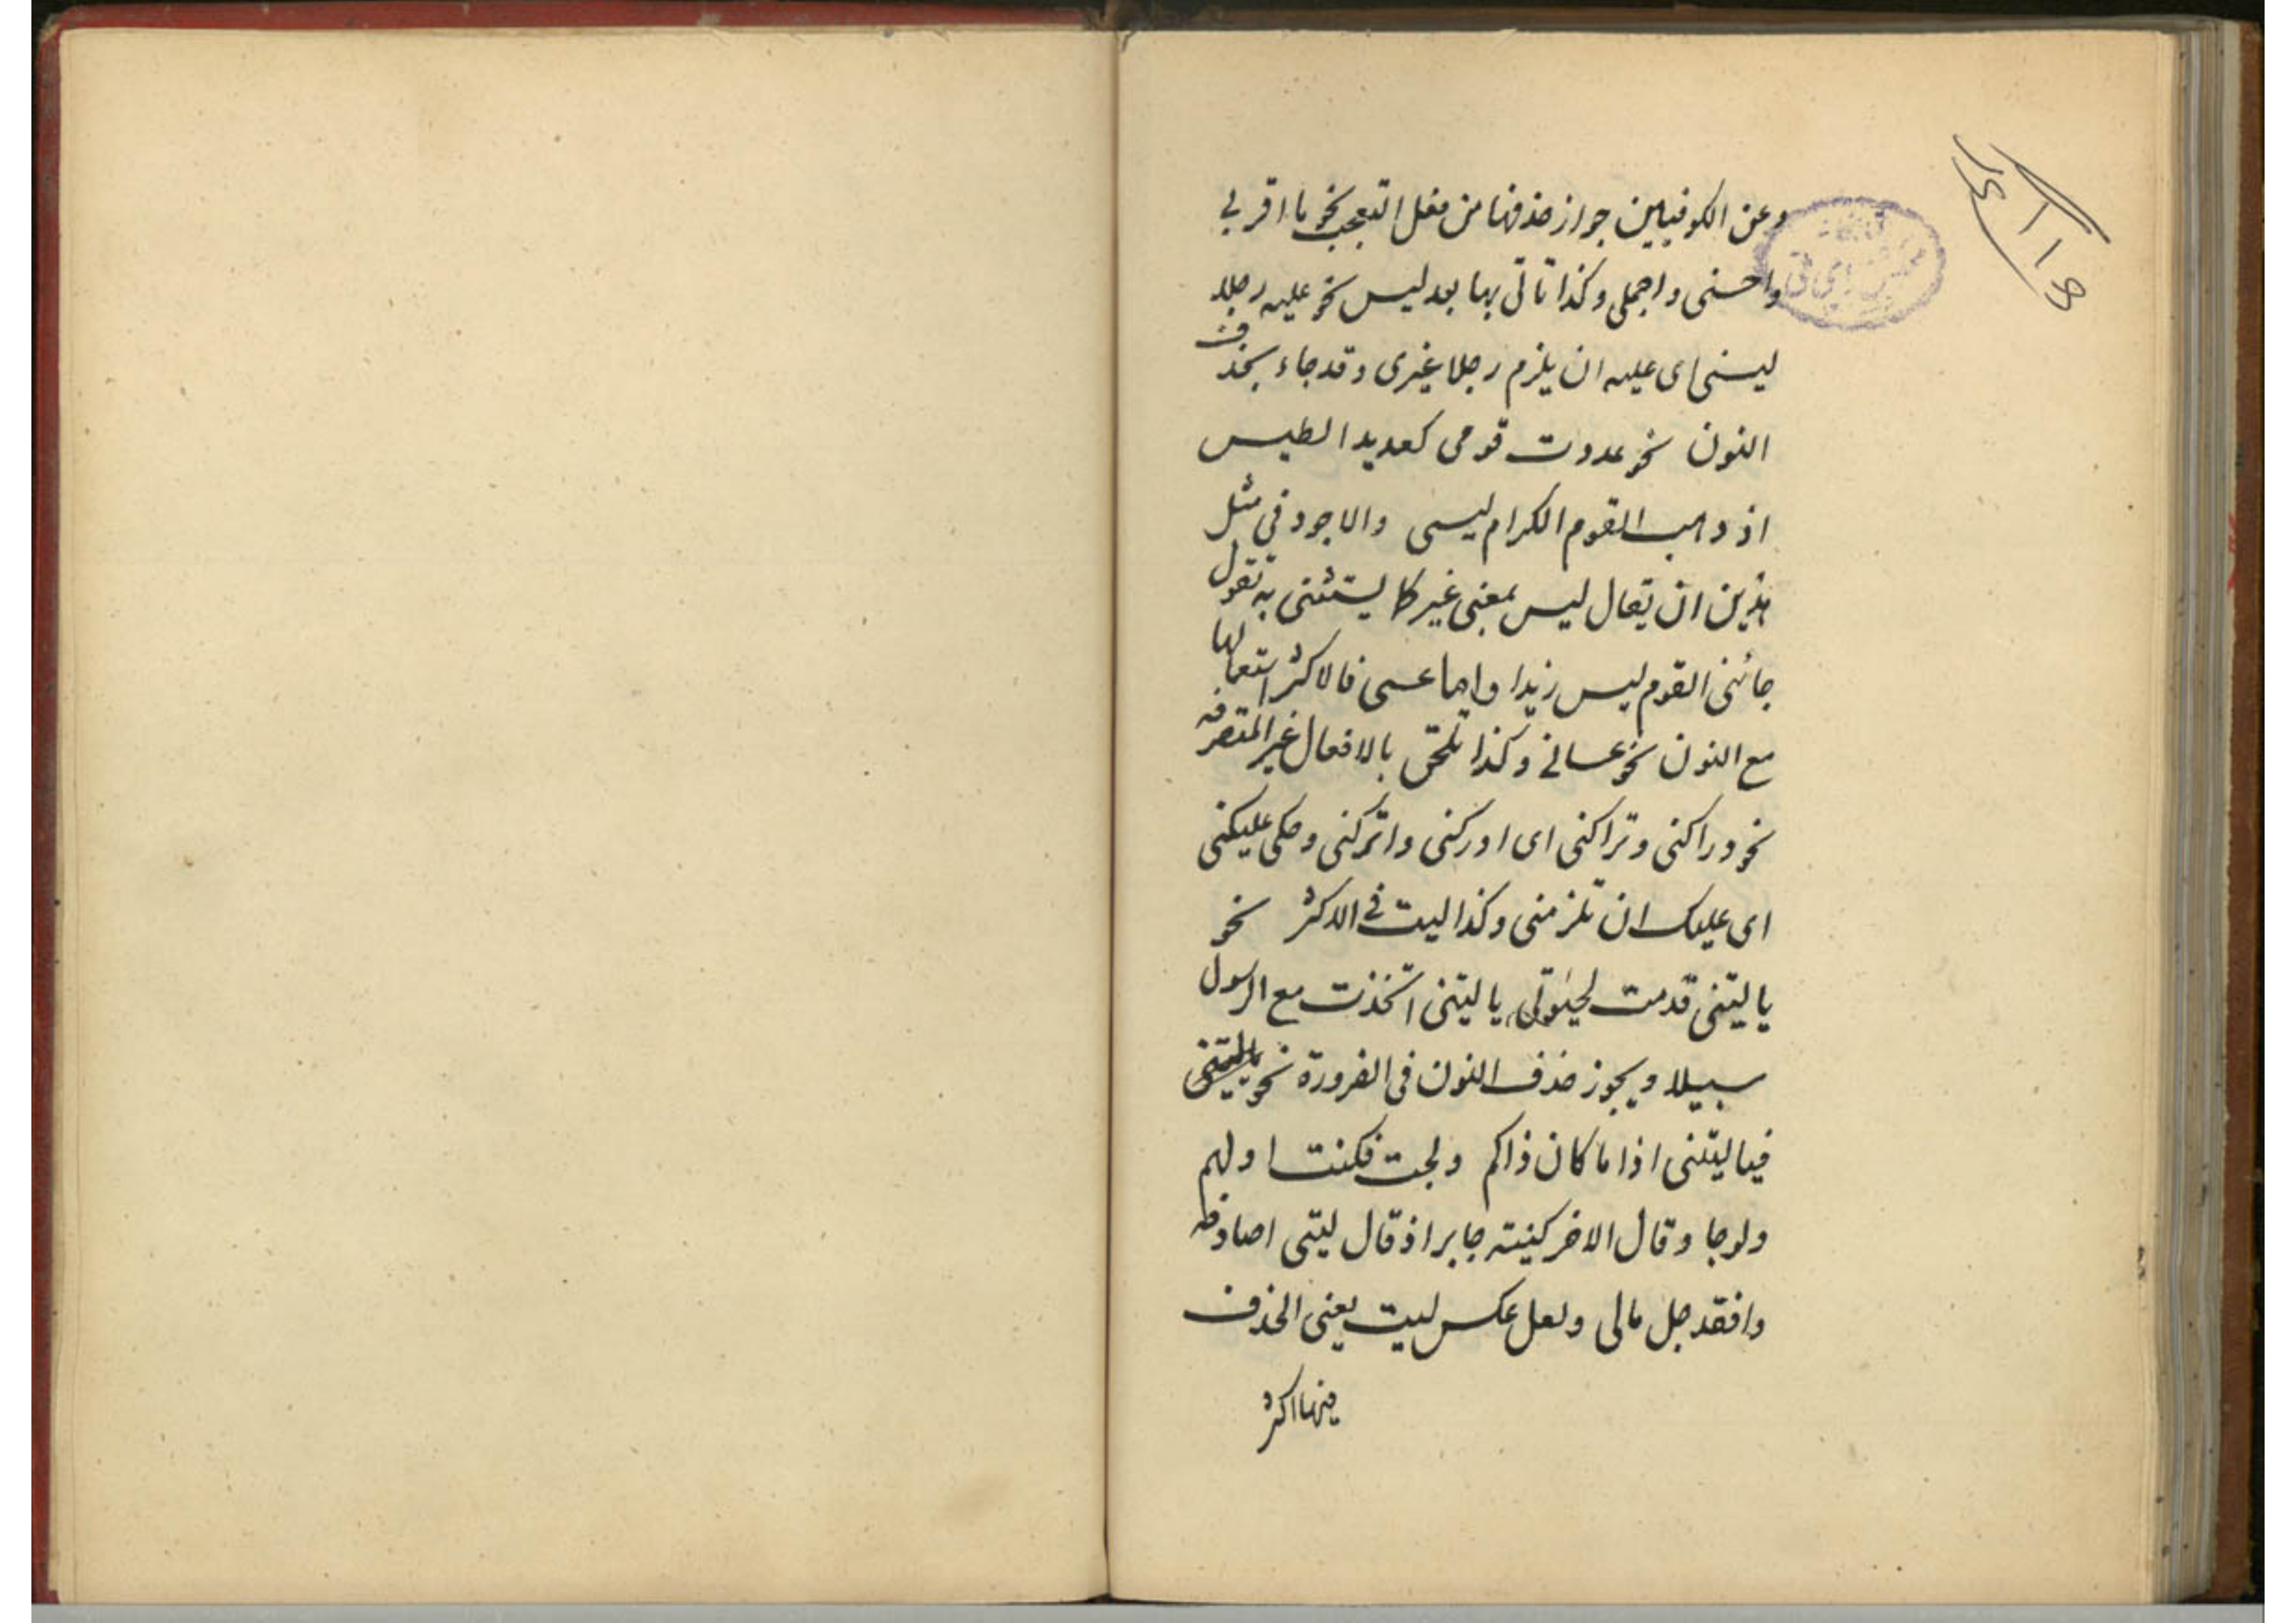 وعن الكوفيين جواز حذفها من فعل التعجب نحو ما اقربی
واحسنی واجملی وكذا تاتی بها بعد لیس نحو علیه رجلا
لیسنی ای علیه ان یلزم رجلا غیری وقد جاء بحذف
النون نحو عددت قومی كعدید الطیس
اذ ذهب القوم الكرام لیسی والاجود فی مثل
هذین ان یقال لیس بمعنی غیر كا یستثنی به تقول
جائنی القوم لیس زیدا واما عسی فالاكثر استعمالها
مع النون نحو عسانی وكذا تلحق بالافعال غیر المتصرفه
نحو دراكنی وتراكنی ای ادركنی واتركنی وحكی علیكنی
ای علیك ان تلزمنی وكذا لیت فی الاكثر نحو
یا لیتنی قدمت لحیوتی یا لیتنی اتخذت مع الرسول
سبیلا ویجوز حذف النون فی الضرورة نحو
فیا لیتنی اذا ما كان ذاكم ولجت فكنت اولهم
ولوجا وقال الاخر كنیته جابر اذ قال لیتی اصادفه
وافقد جل مالی ولعل عكس لیت یعنی الحذف
فیها اكثر